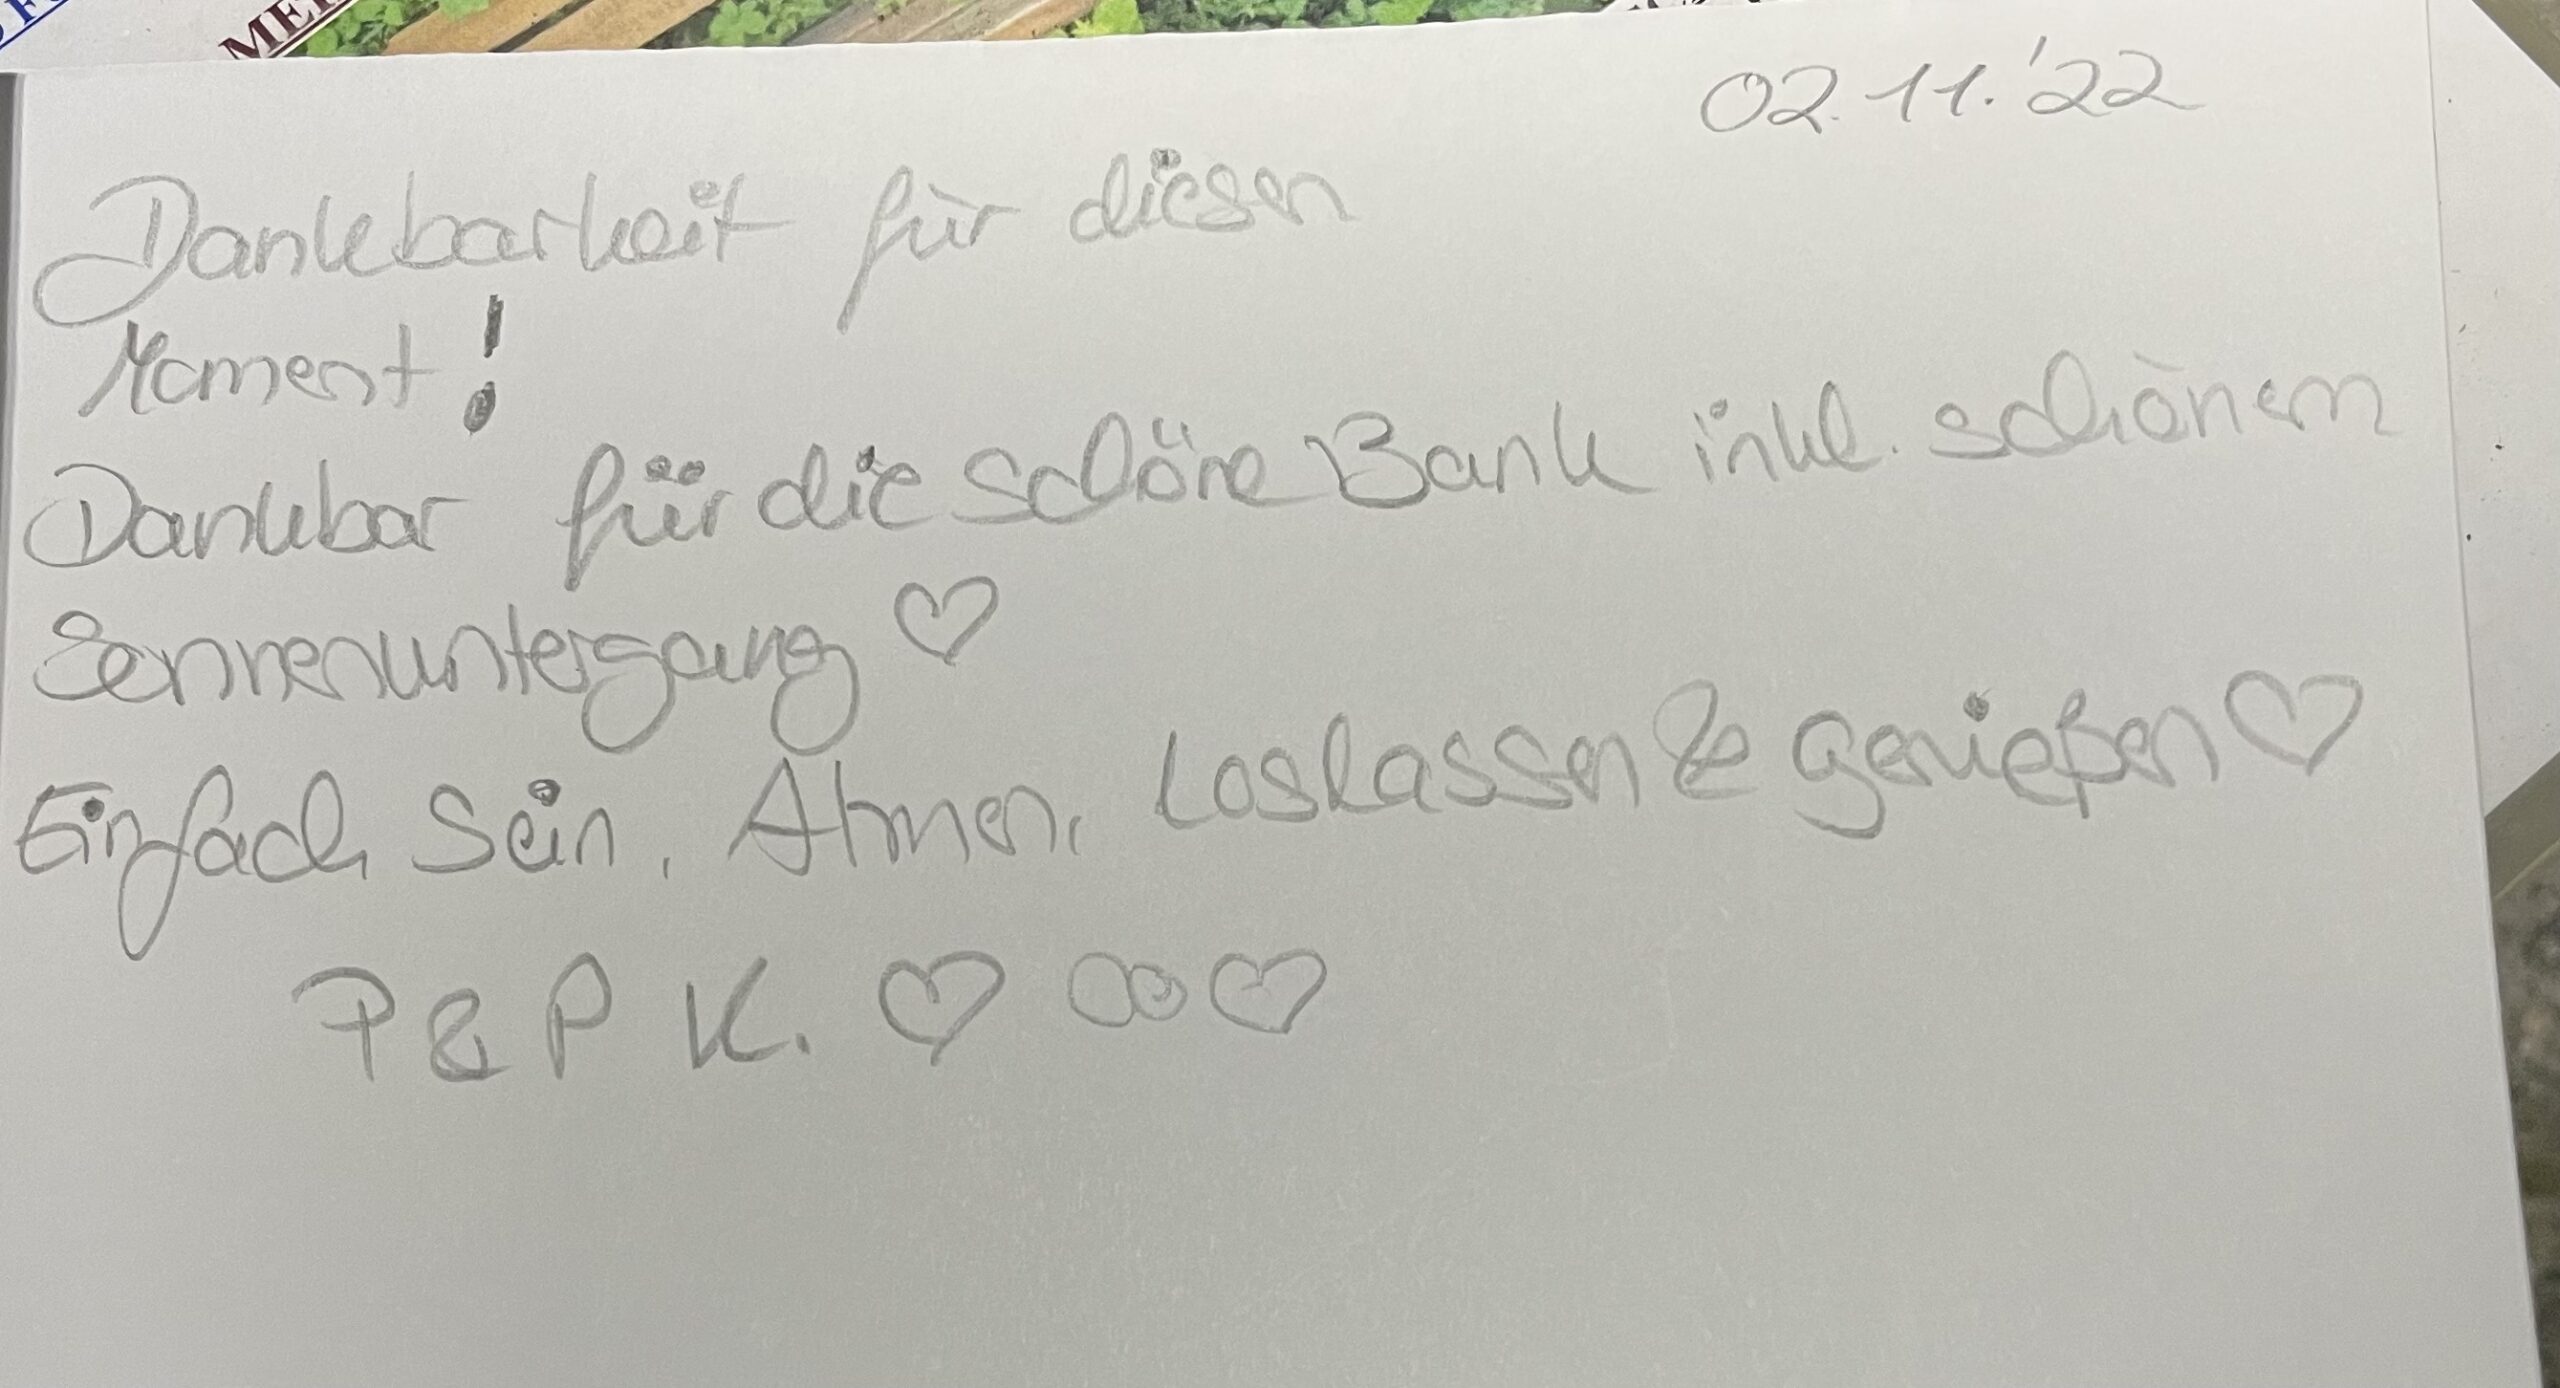 MER
02.11.'22
Dankbarkeit für diesen
Moment!
Dankbar für die schöne Bank inkl. schönem
Sonnenuntergang ♡
Einfach Sein, Atmen, Loslassen & genießen ♡
P & P K. ♡ ∞ ♡